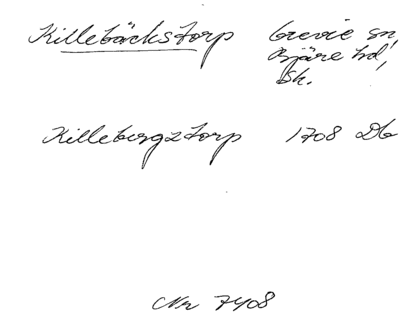 Killebäckstorp Grevie sn,
Bjäre hd,
Sk.
Killebergztorp 1708 Db
Nr 7408